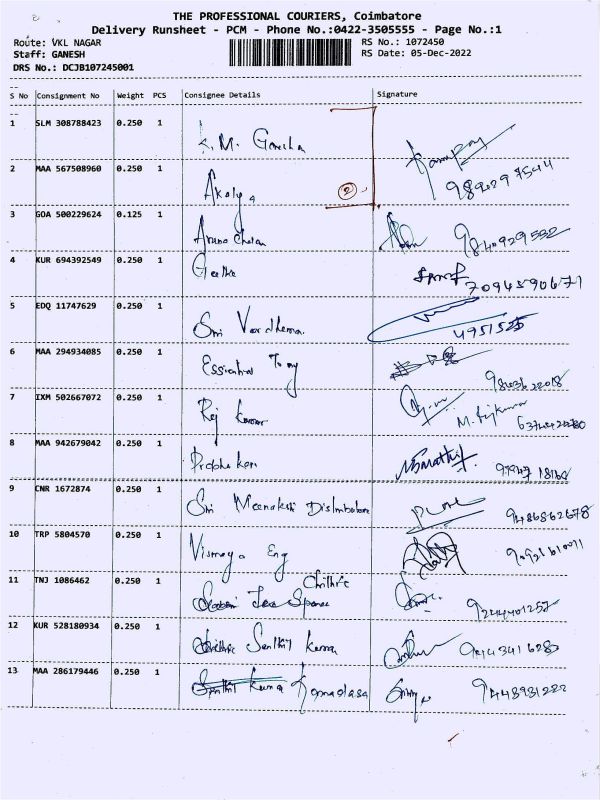 THE PROFESSIONAL COURIERS, Coimbatore
Delivery Runsheet - PCM - Phone No.:0422-3505555 - Page No.:1
Route: VKL NAGAR
RS No.: 1072450
Staff: GANESH
RS Date: 05-Dec-2022
DRS No.: DCJB107245001
S No Consignment No Weight PCS Consignee Details Signature
1 SLM 308788423 0.250 1 K. M. Ganesha
2 MAA 567508960 0.250 1 Akalya 2
3 GOA 500229624 0.125 1 Arunachalan
4 KUR 694392549 0.250 1 Geetha 7094590671
5 EDQ 11747629 0.250 1 Sri Vardhema
6 MAA 294934085 0.250 1
7 IXM 502667072 0.250 1 Raj Kumar M. Rijkumar
8 MAA 942679042 0.250 1 Prabhakar
9 CNR 1672874 0.250 1 Sri Meenakshi 9486862678
10 TRP 5804570 0.250 1 Vismaya Eng
11 TNJ 1086462 0.250 1 Chithre 9244401257
12 KUR 528180934 0.250 1 Senthil Kumar
13 MAA 286179446 0.250 1